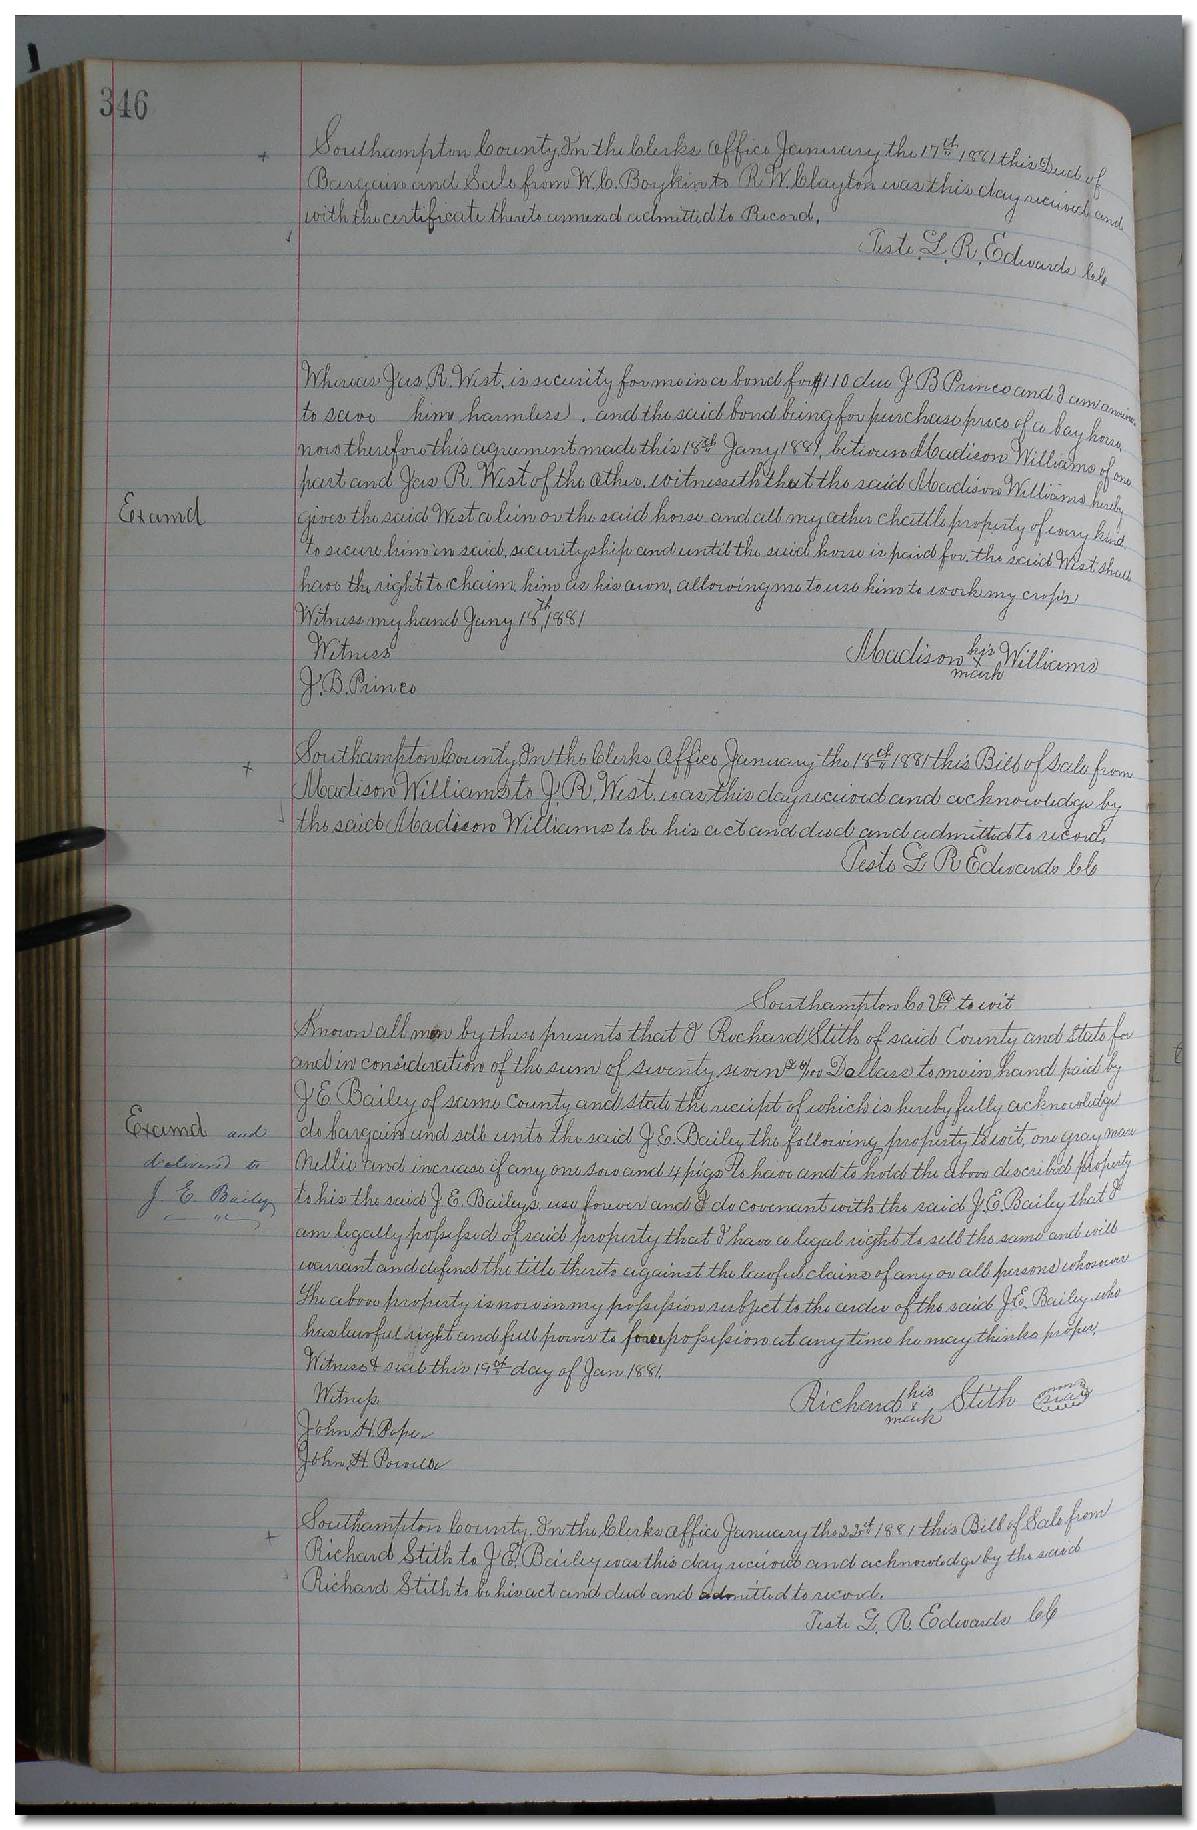 346
Southampton County, In the Clerks Office January the 17th 1881 this Deed of
Bargain and Sale from W. C. Boykin to R. W. Clayton was this day received and
with the certificate thereto annexed admitted to Record.
Teste L. R. Edwards CC
Whereas Jas. R. West, is security for me in a bond for $110 due J B Prince and I am anxious
to save him harmless, and the said bond being for purchase price of a bay horse,
now therefore this agreement made this 18th Jany 1881, between Madison Williams of one
part and Jas R. West of the other, witnesseth that the said Madison Williams hereby
Examd
gives the said West a lien on the said horse and all my other chattle property of every kind
to secure him in said, securityship and until the said horse is paid for, the said West shall
have the right to chaim him as his own, allowing me to use him to work my crops
Witness my hand Jany 18th, 1881
Witness
Madison his x mark Williams
J. B. Prince
Southampton County, In the Clerks Office January the 18th 1881 this Bill of Sale from
Madison Williams to J. R. West, was this day received and acknowledge by
the said Madison Williams to be his act and deed and admitted to record,
Teste L R Edwards CC
Southampton Co Va to wit
Known all men by these presents that I Richard Stith of said County and State for
and in consideration of the sum of seventy seven & 0/100 Dollars to me in hand paid by
J E Bailey of same County and State the receipt of which is hereby fully acknowledge
Examd and
delivered to
J E Bailey
do bargain and sell unto the said J. E. Bailey the following property to wit, one gray mare
Nellie and increase if any one sow and 4 pigs to have and to hold the above described property
to his the said J. E. Baileys use forever and I do covenant with the said J. E. Bailey that I
am legally possessed of said property that I have a legal right to sell the same and will
warrant and defend the title thereto against the lawful claims of any or all persons whosoever
The above property is now in my possession subject to the order of the said J. E. Bailey, who
has lawful right and full power to possession at any time he may thinks proper,
Witness & seal this 19th day of Jan 1881,
Witness
Richard his x mark Stith seal
John H. Pope
John H. Powell
Southampton County, In the Clerks Office January the 22nd 1881 this Bill of Sale from
Richard Stith to J. E. Bailey was this day received and acknowledge by the said
Richard Stith to be his act and deed and admitted to record,
Teste L. R. Edwards CC